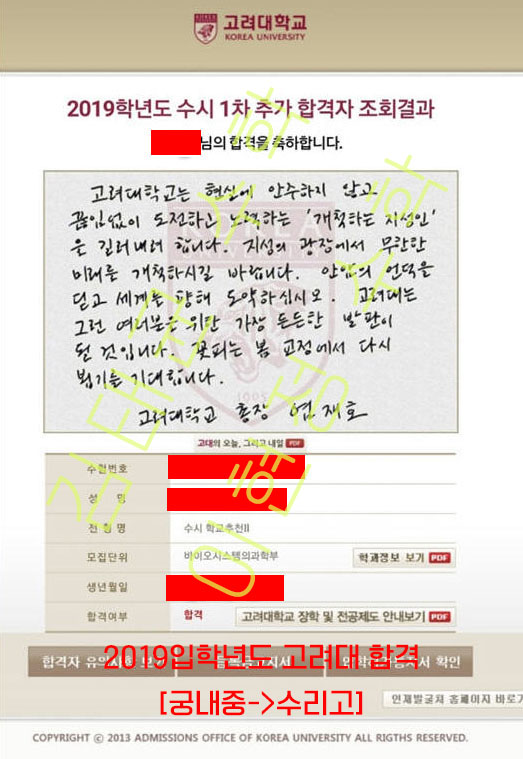 고려대학교
KOREA UNIVERSITY
2019학년도 수시 1차 추가 합격자 조회결과
님의 합격을 축하합니다.
고려대학교는 현실에 안주하지 않고
끊임없이 도전하고 노력하는 '개척하는 지성인'
을 길러내려 합니다. 지성의 광장에서 무한한
미래를 개척하시길 바랍니다. 안암의 언덕을
딛고 세계를 향해 도약하십시오. 고려대는
그런 여러분을 위한 가장 든든한 발판이
될 것입니다. 꽃피는 봄 교정에서 다시
뵙기를 기대합니다.
고려대학교 총장 염재호
고대의 오늘, 그리고 내일 PDF
수험번호
성 명
전형명 수시 학교추천II
모집단위 바이오시스템의과학부 학과정보 보기 PDF
생년월일
합격여부 합격 고려대학교 장학 및 전공제도 안내보기 PDF
합격자 유의사항 보기 등록금고지서 확인
2019입학년도 고려대 합격
[궁내중->수리고]
인재발굴처 홈페이지 바로가
COPYRIGHT ⓒ 2013 ADMISSIONS OFFICE OF KOREA UNIVERSITY ALL RIGTHS RESERVED.